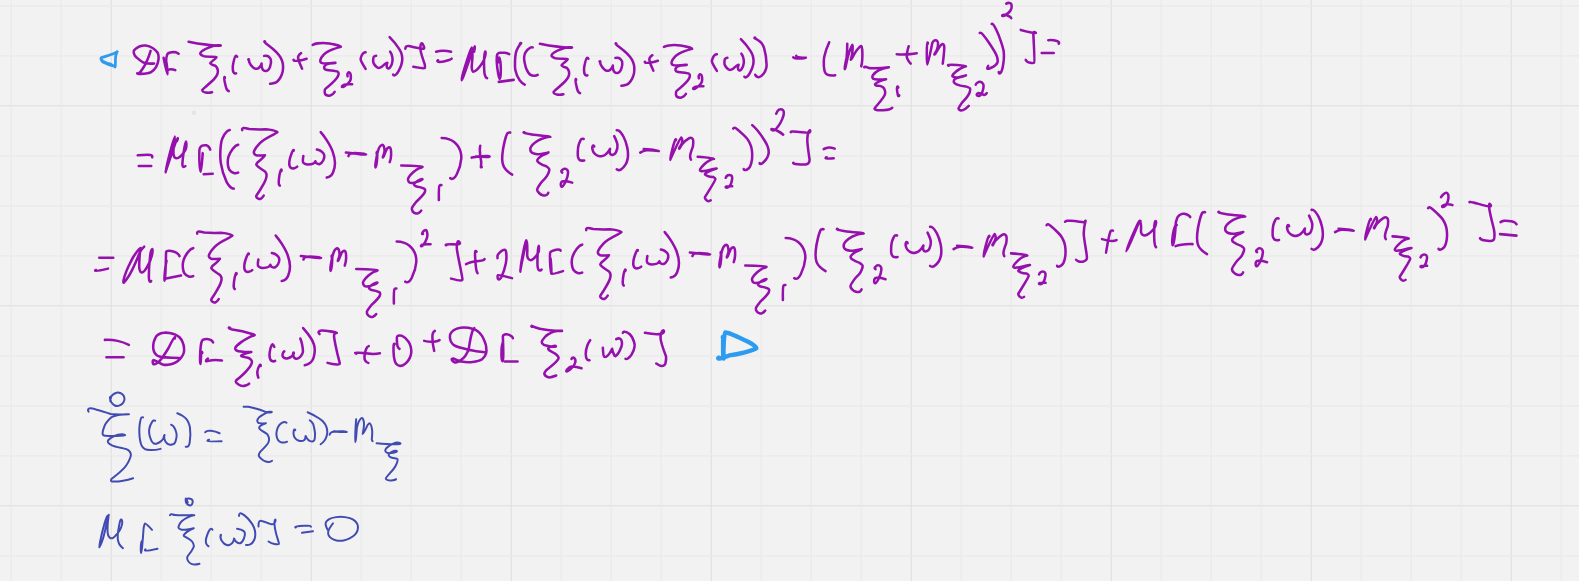 ◁ D[ξ₁(ω)+ξ₂(ω)]=M[((ξ₁(ω)+ξ₂(ω))-(m_ξ₁+m_ξ₂))²]=
=M[((ξ₁(ω)-m_ξ₁)+(ξ₂(ω)-m_ξ₂))²]=
=M[(ξ₁(ω)-m_ξ₁)²]+2M[(ξ₁(ω)-m_ξ₁)(ξ₂(ω)-m_ξ₂)]+M[(ξ₂(ω)-m_ξ₂)²]=
=D[ξ₁(ω)]+0+D[ξ₂(ω)] ▷
ξ̊(ω)=ξ(ω)-m_ξ
M[ξ̊(ω)]=0